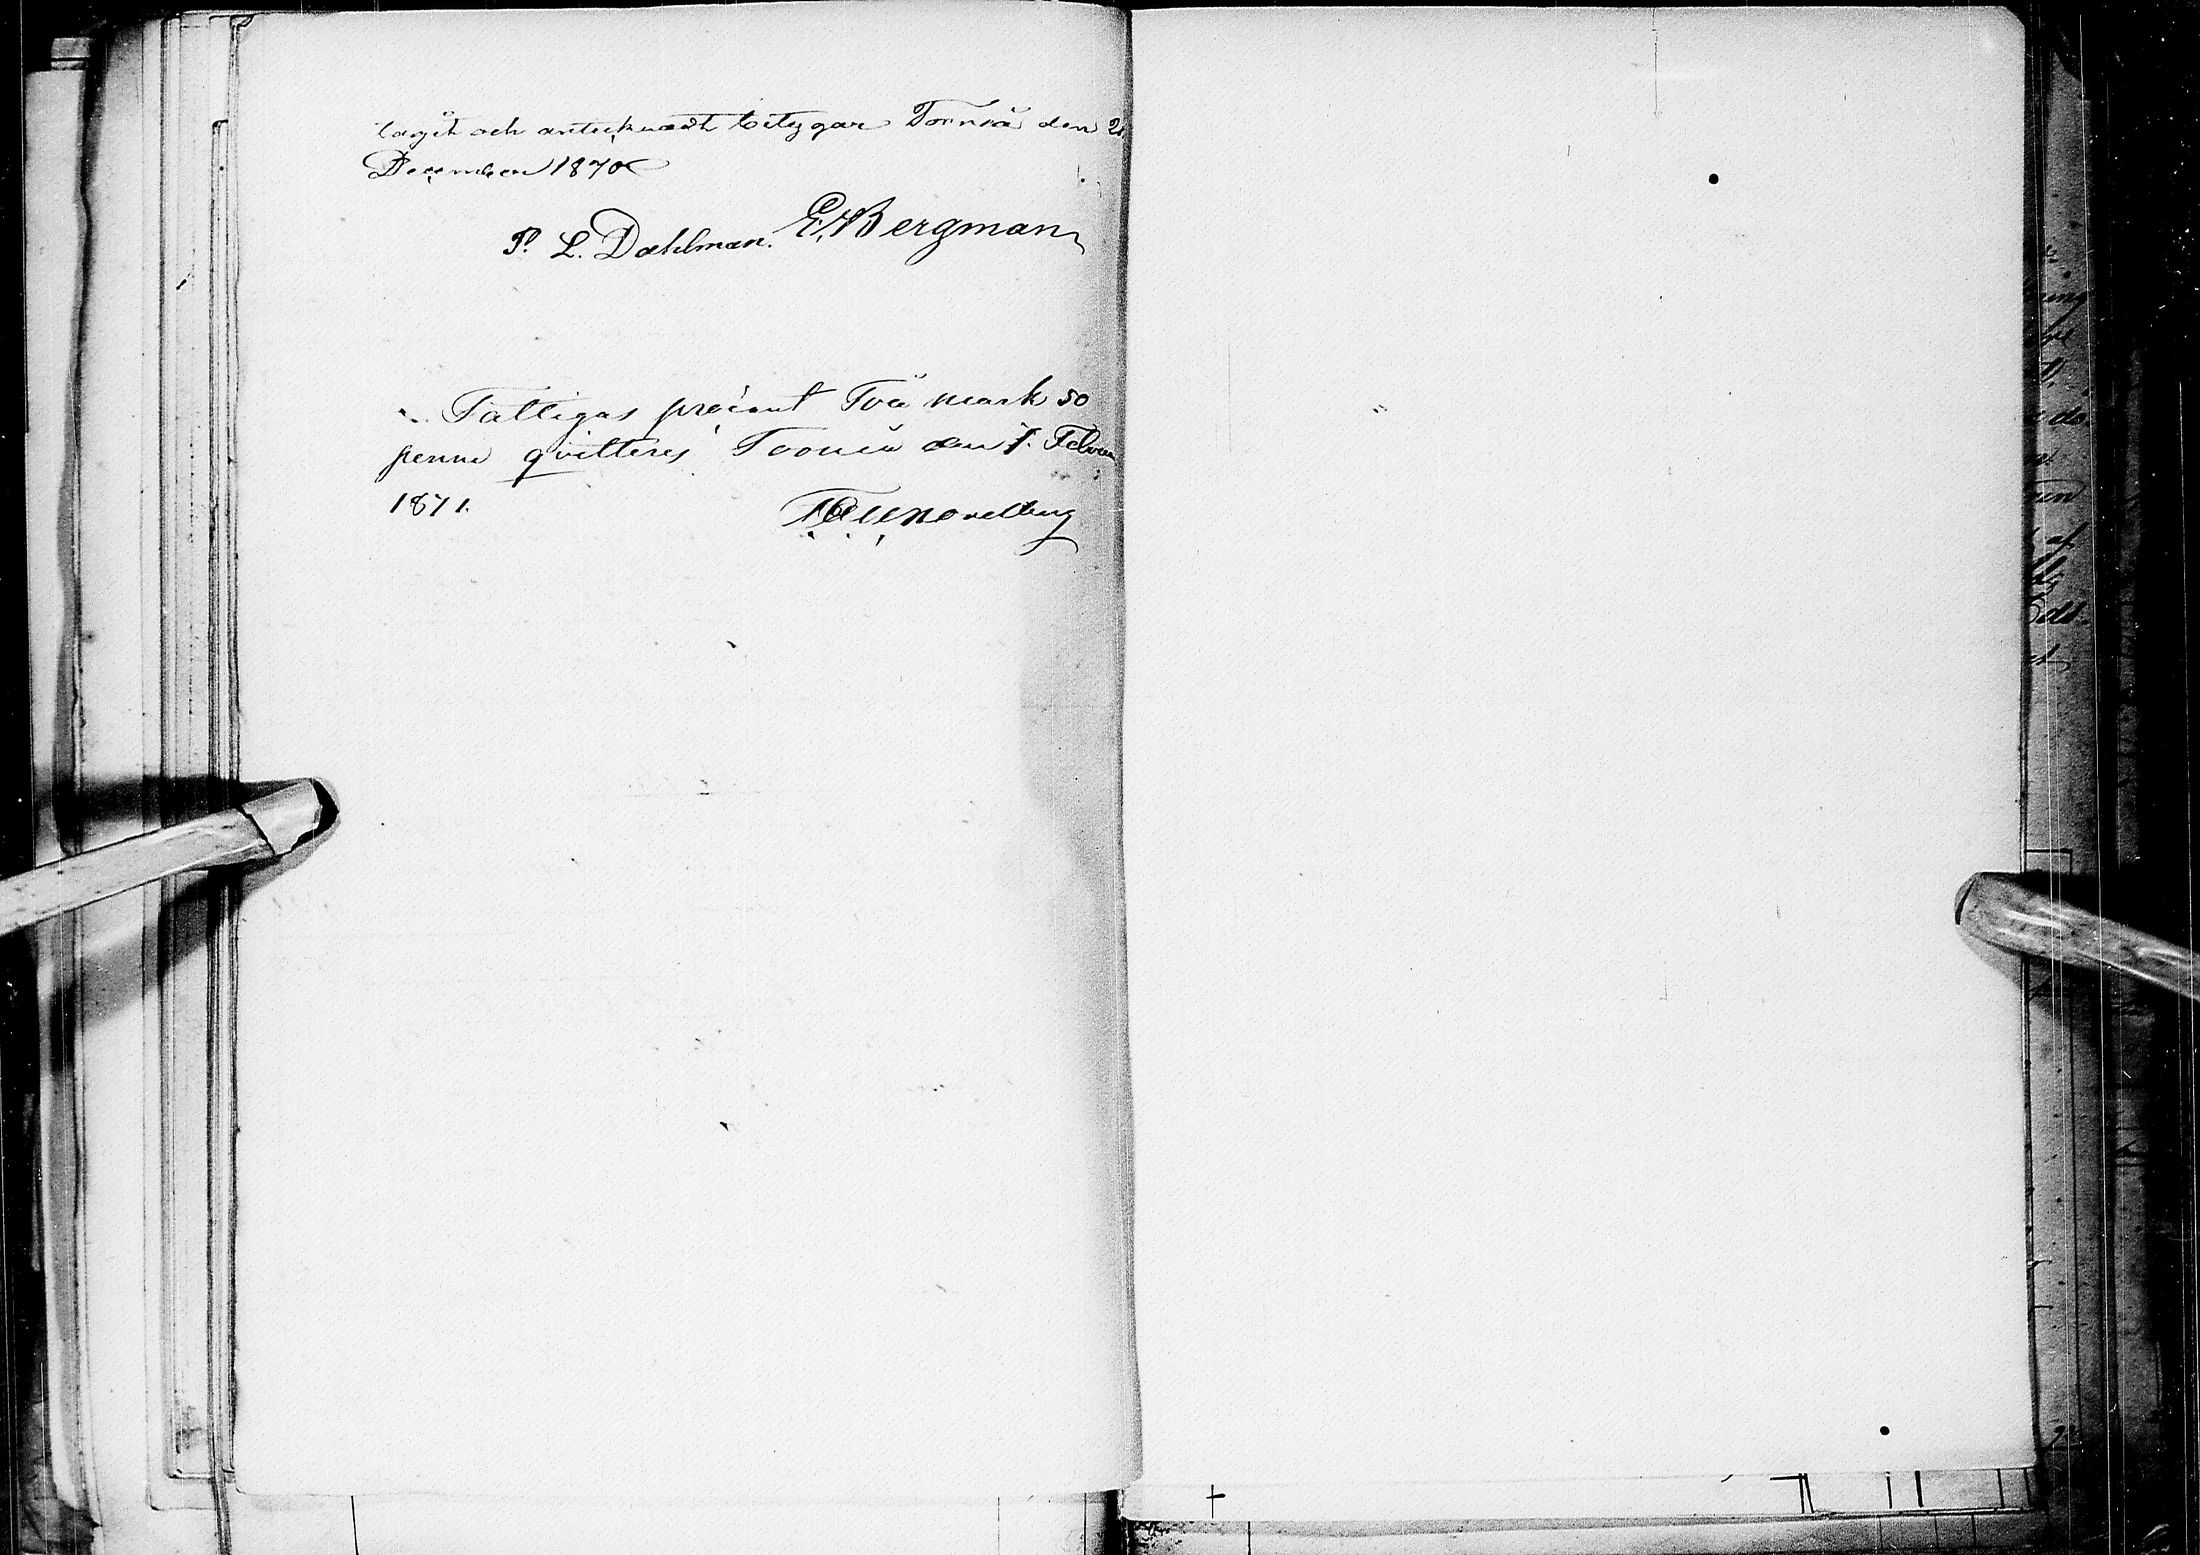 tagit och antecknadt betygar Torneå den 2
December 1870
P. L. Dahlman. E. Bergman
Fattigas procent Två mark 50
penni qvitteres Torneå den 7. Februa
1871.